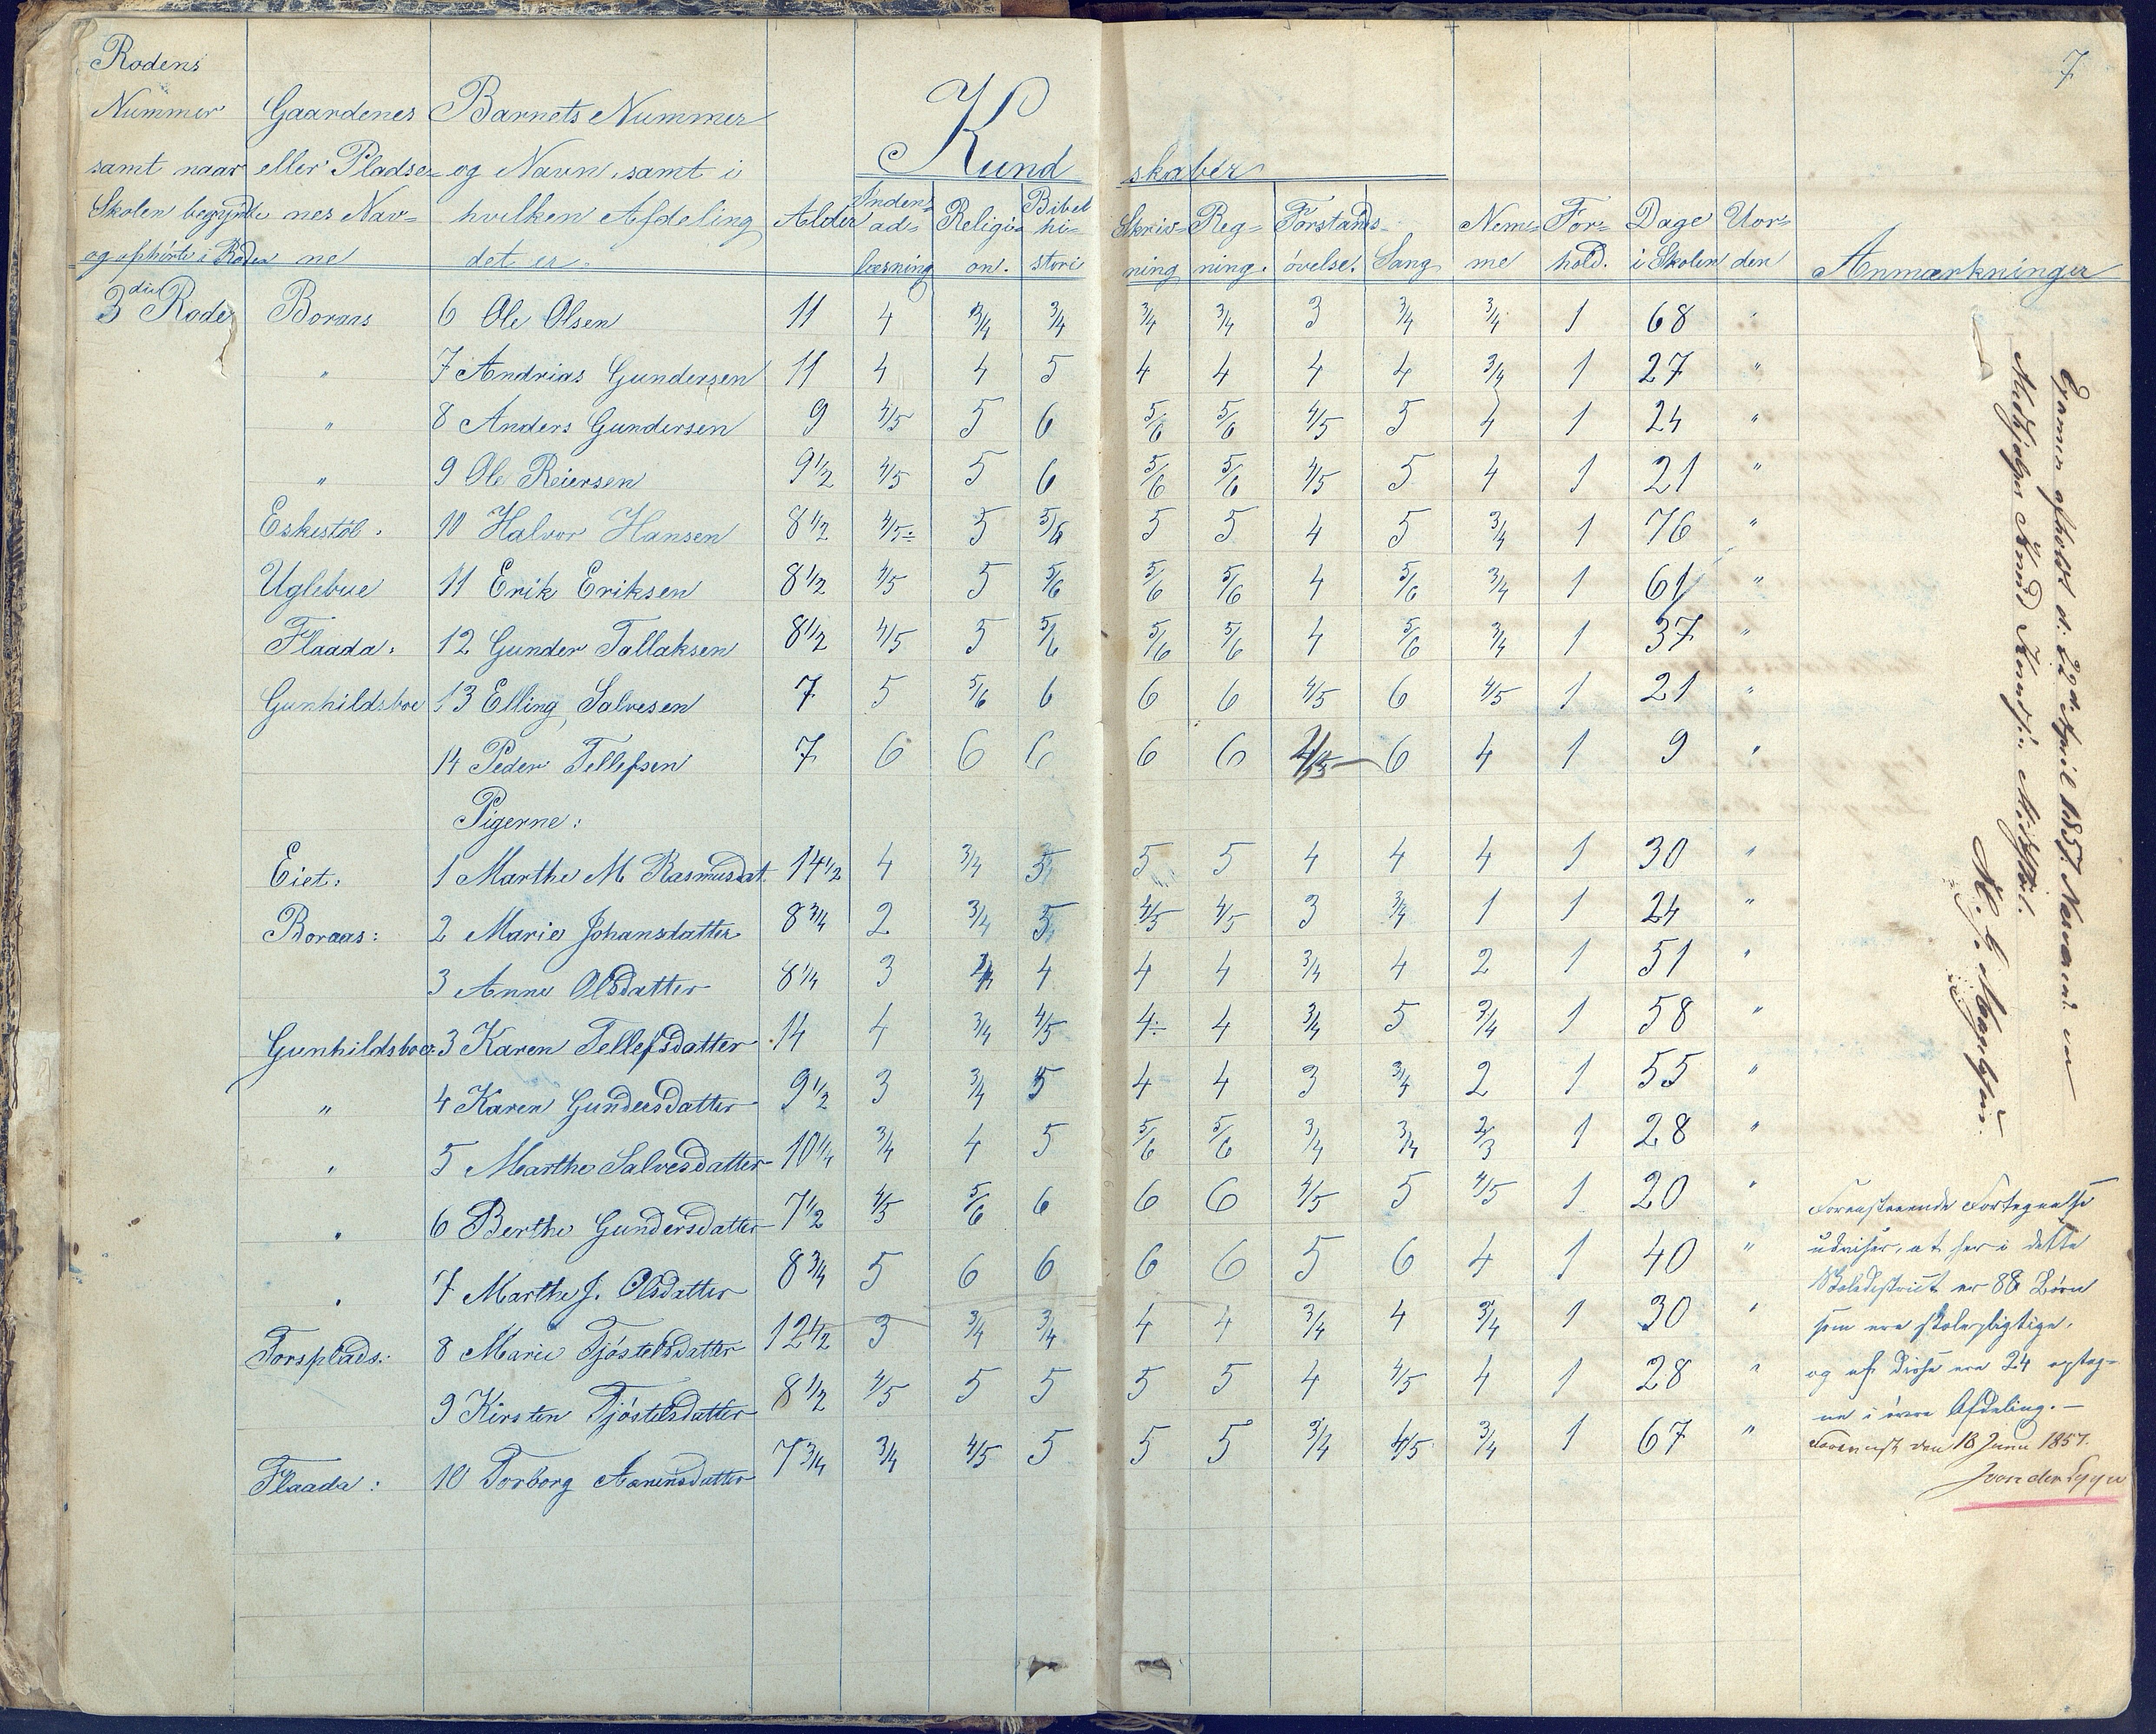 7
Rodens Nummer samt naar Skolen begyndte og ophörte i Roden
Gaardenes eller Pladsenes Navne
Barnets Nummer og Navn, samt i hvilken Afdeling det er.
Alder
Kundskaber
Indenadlæsning
Religion.
Bibelhistorie
Skrivning
Regning.
Forstandsövelse.
Sang
Nemme
Forhold.
Dage i Skolen
Anmærkninger
3die Rode Boraas 6 Ole Olsen 11 4 3/4 3/4 3/4 3/4 3 3/4 3/4 1 68 "
" 7 Andrias Gundersen 11 4 4 5 4 4 4 4 3/4 1 27 "
" 8 Anders Gundersen 9 4/5 5 6 5/6 5/6 4/5 5 4 1 24 "
" 9 Ole Reiersen 9 1/2 4/5 5 6 5/6 5/6 4/5 5 4 1 21 "
Eskestöl. 10 Halvor Hansen 8 1/2 4/5÷ 5 5/6 5 5 4 5 3/4 1 76 "
Uglebue 11 Erik Eriksen 8 1/2 4/5 5 5/6 5/6 5/6 4 5/6 3/4 1 61 "
Flaada. 12 Gunder Tallaksen 8 1/2 4/5 5 5/6 5/6 5/6 4 5/6 3/4 1 37 "
Gunhildsboe 13 Elling Salvesen 7 5 5/6 6 6 6 4/5 6 4/5 1 21 "
14 Peder Tellefsen 7 6 6 6 6 6 4/5 6 4 1 9 "
Pigerne:
Eiet: 1 Marthe M Rasmusdat. 14 1/2 4 3/4 5 5 5 4 4 4 1 30 "
Boraas: 2 Marie Johansdatter 8 3/4 2 3/4 5 4/5 4/5 3 3/4 1 1 24 "
3 Anne Olsdatter 8 1/4 3 4 4 4 3/4 4 2 1 51 "
Gunhildsboe: 3 Karen Tellefsdatter 14 4 3/4 4/5 4÷ 4 3/4 5 3/4 1 58 "
" 4 Karen Gundersdatter 9 1/2 3 3/4 5 4 4 3 3/4 2 1 55 "
" 5 Marthe Salvesdatter 10 1/4 3/4 4 5 5/6 5/6 3/4 3/4 2/3 1 28 "
" 6 Berthe Gundersdatter 7 1/2 4/5 5/6 6 6 6 4/5 5 4/5 1 20 "
" 7 Marthe J. Olsdatter 8 3/4 5 6 6 6 6 5 6 4 1 40 "
Torsplads: 8 Marie Tjöstelsdatter 12 1/2 3 3/4 3/4 4 4 3/4 4 3/4 1 30 "
9 Kirsten Tjöstelsdatter 8 1/2 4/5 5 5 5 5 4 4/5 4 1 28 "
Flaada: 10 Torborg Aanensdatter 7 3/4 3/4 4/5 5 5 5 3/4 4/5 3/4 1 67 "
Examen afholdt d. 22d April 1857. Nærværende var
Medhjelper Knud Knudsen
Foranstaaende Fortegnelse
udviser, at her i dette
Skoledistrict er 88 Børn
som ere skolepligtige,
og af disse ere 24 optag-
ne i övre Afdeling. —
den 18 Juni 1857.